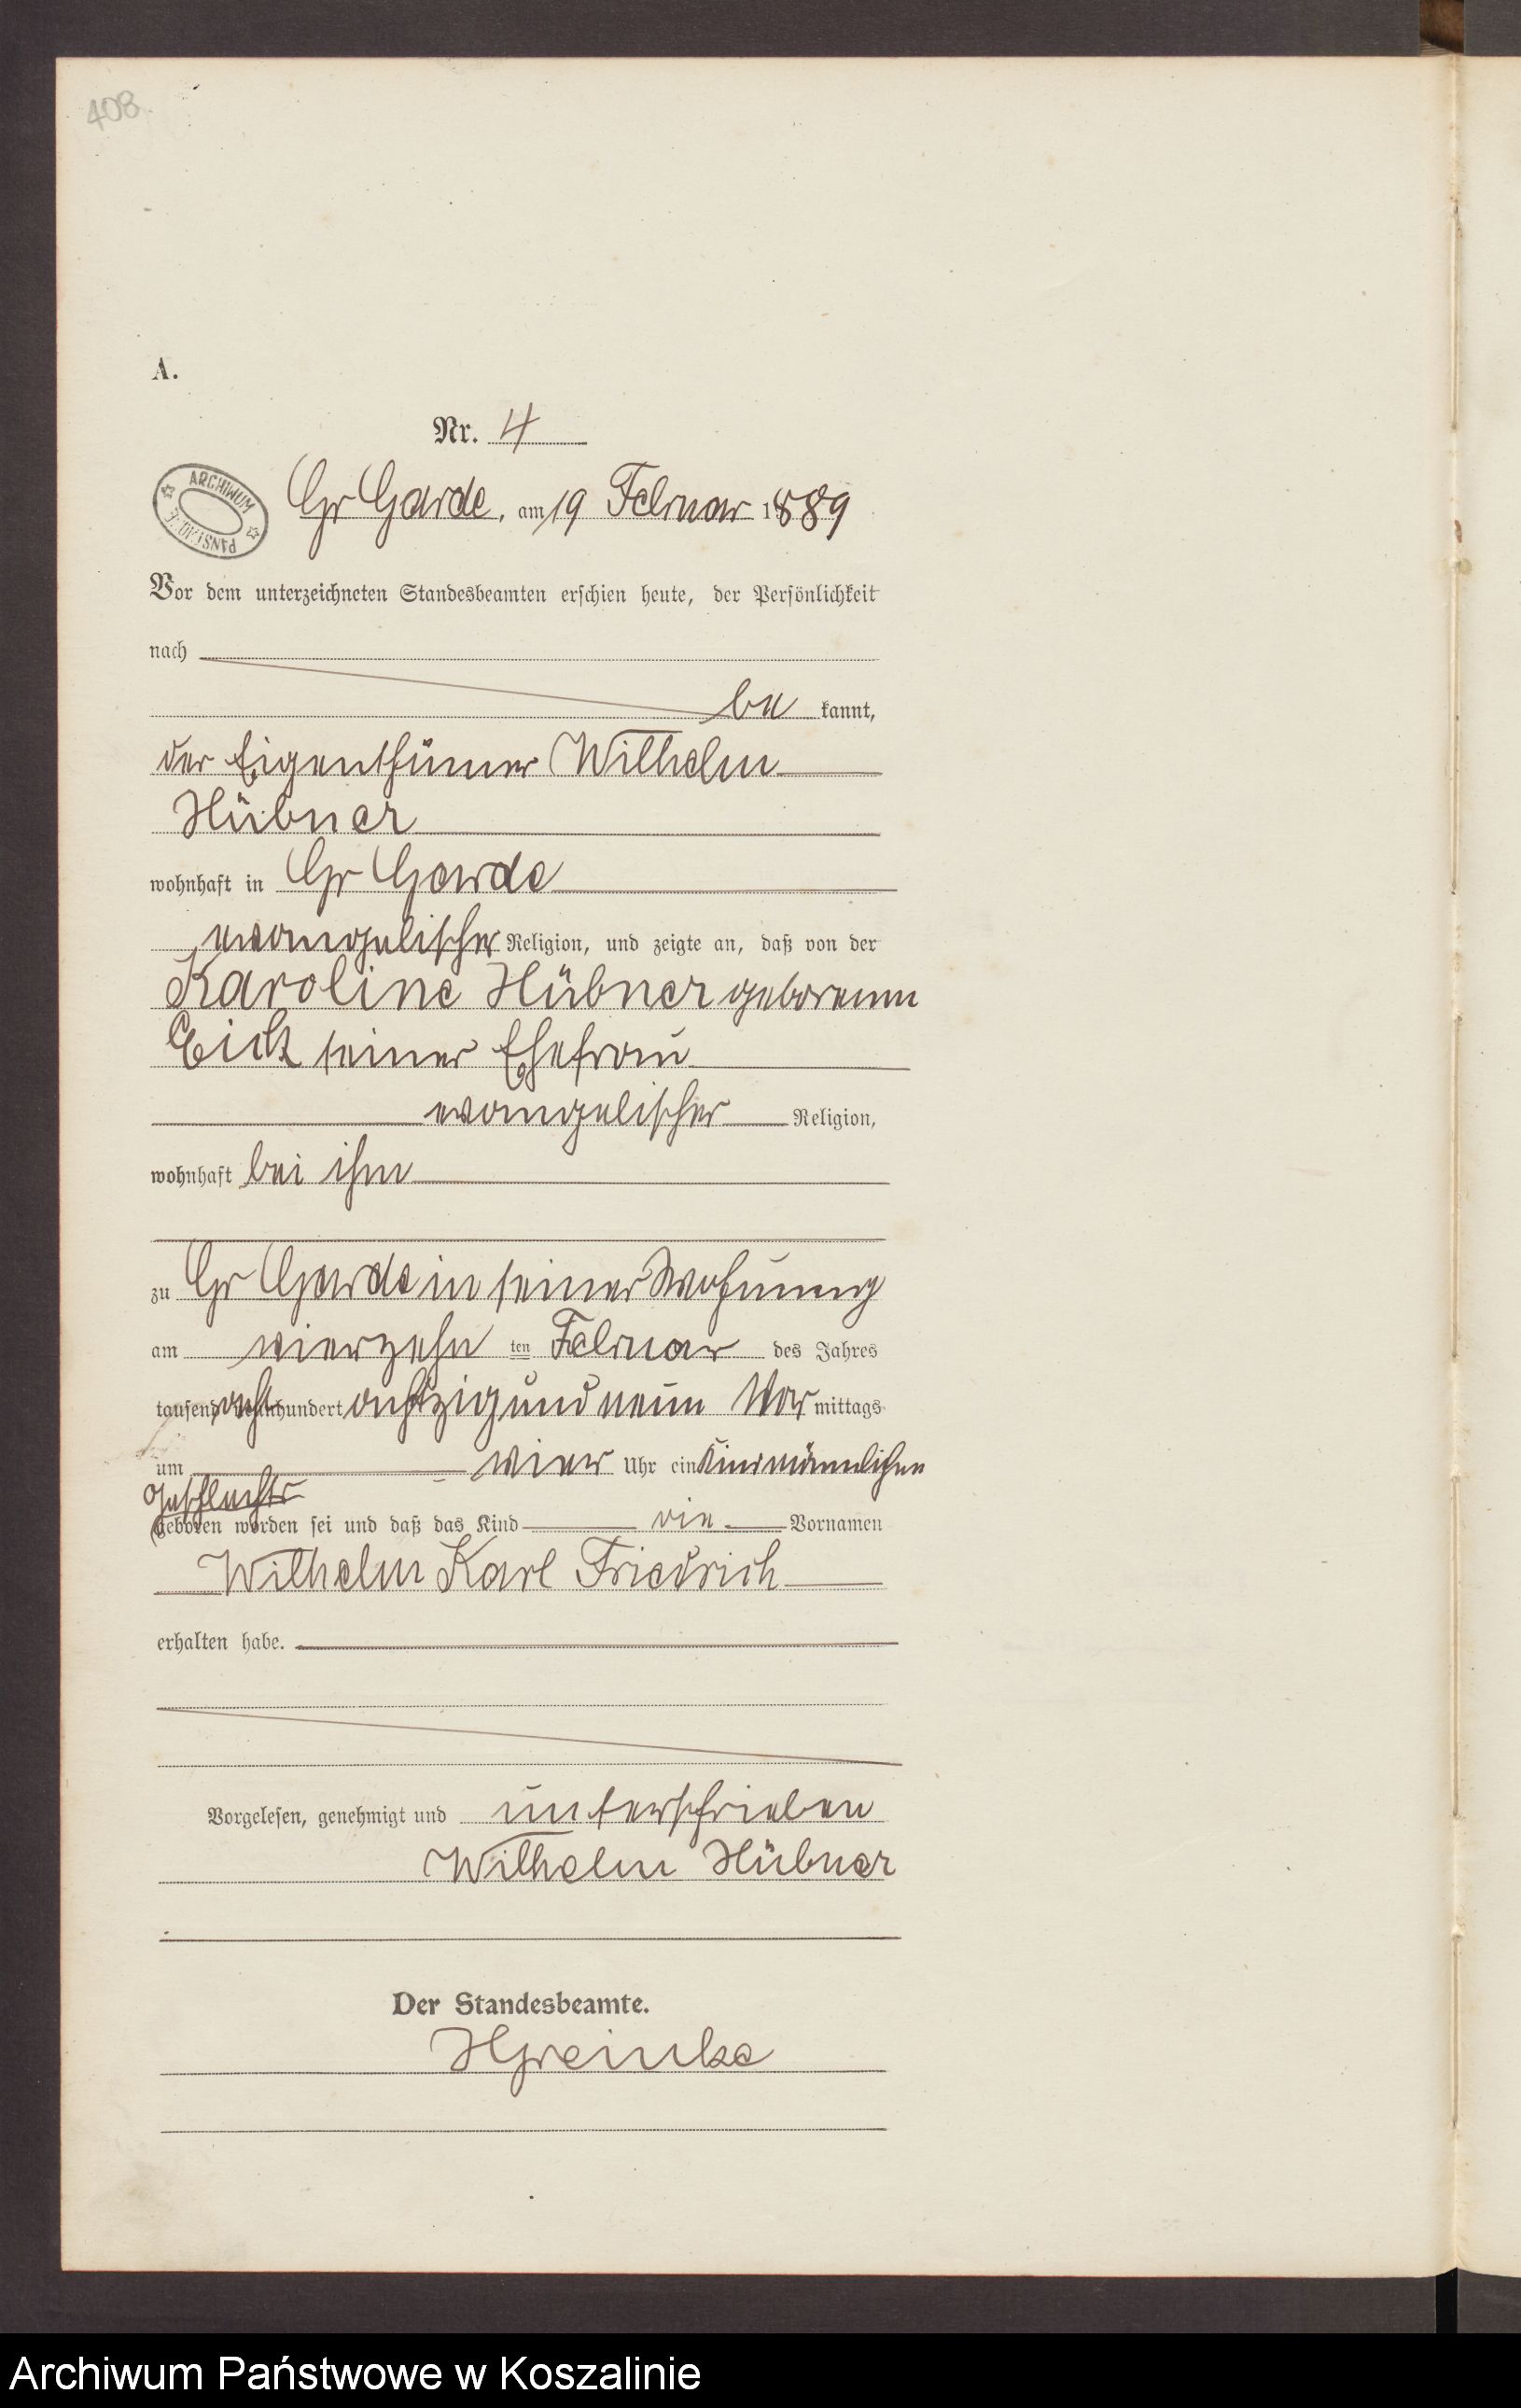 408
A.
Nr. 4
ARCHIWUM PAŃSTWOWE
Gr Garde, am 19 Februar 1889
Vor dem unterzeichneten Standesbeamten erschien heute, der Persönlichkeit
nach
be kannt,
der Eigenthümer Wilhelm
Hübner
wohnhaft in Gr Garde
evangelischer Religion, und zeigte an, daß von der
Karoline Hübner geborenen
Eick seiner Ehefrau
evangelischer Religion,
wohnhaft bei ihm
zu Gr Garde in seiner Wohnung
am vierzehn ten Februar des Jahres
tausend acht hundert achtzig und neun Vor mittags
um vier Uhr ein Kind männlichen
Geschlechts
geboren worden sei und daß das Kind die Vornamen
Wilhelm Karl Friedrich
erhalten habe.
Vorgelesen, genehmigt und unterschrieben
Wilhelm Hübner
Der Standesbeamte.
Archiwum Państwowe w Koszalinie